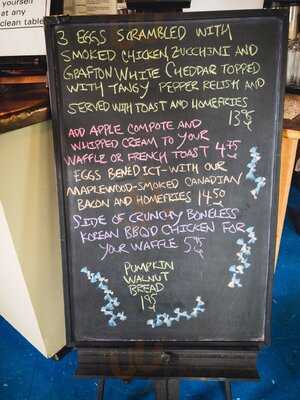 yourself
at any
clean table
3 EGGS SCRAMBLED WITH
SMOKED CHICKEN, ZUCCHINI AND
GRAFTON WHITE CHEDDAR TOPPED
WITH TANGY PEPPER RELISH AND
SERVED WITH TOAST AND HOMEFRIES
13.95
ADD APPLE COMPOTE AND
WHIPPED CREAM TO YOUR
WAFFLE OR FRENCH TOAST 4.75
EGGS BENEDICT-WITH OUR
MAPLEWOOD-SMOKED CANADIAN
BACON AND HOMEFRIES 14.50
SIDE OF CRUNCHY BONELESS
KOREAN BBQD CHICKEN FOR
YOUR WAFFLE 5.95
PUMPKIN
WALNUT
BREAD
1.95